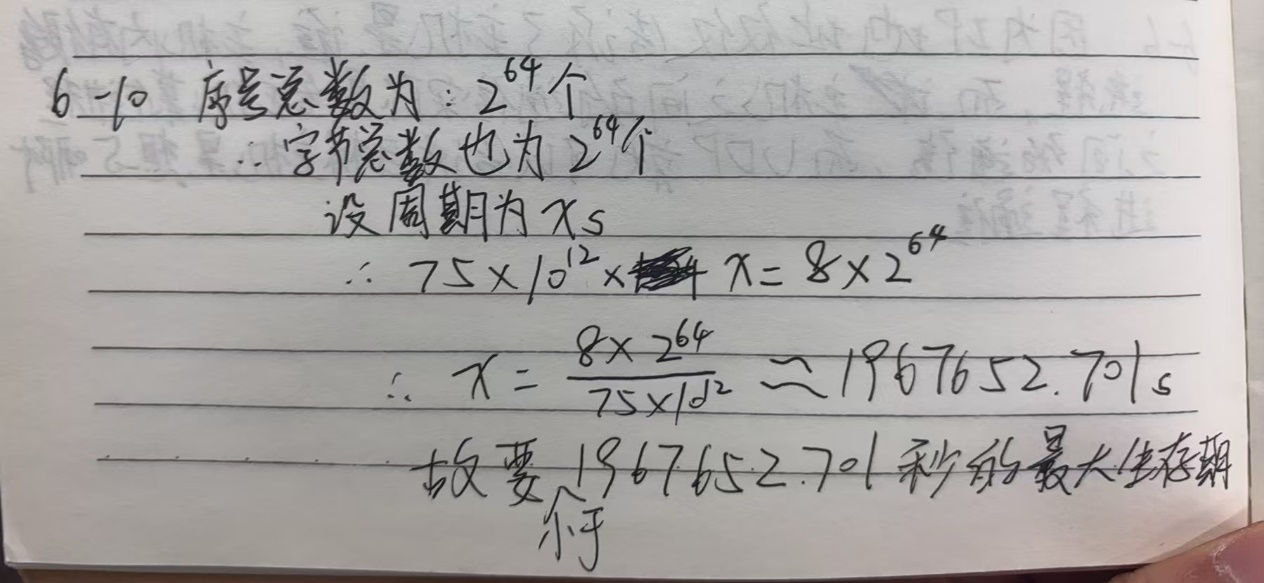 6-10 序号总数为：2^64个
∴字节总数也为2^64个
设周期为xs
∴ 75×10^12× x=8×2^64
∴ x=8×2^64/75×10^12≈1967652.701s
故要小于1967652.701秒的最大生存期